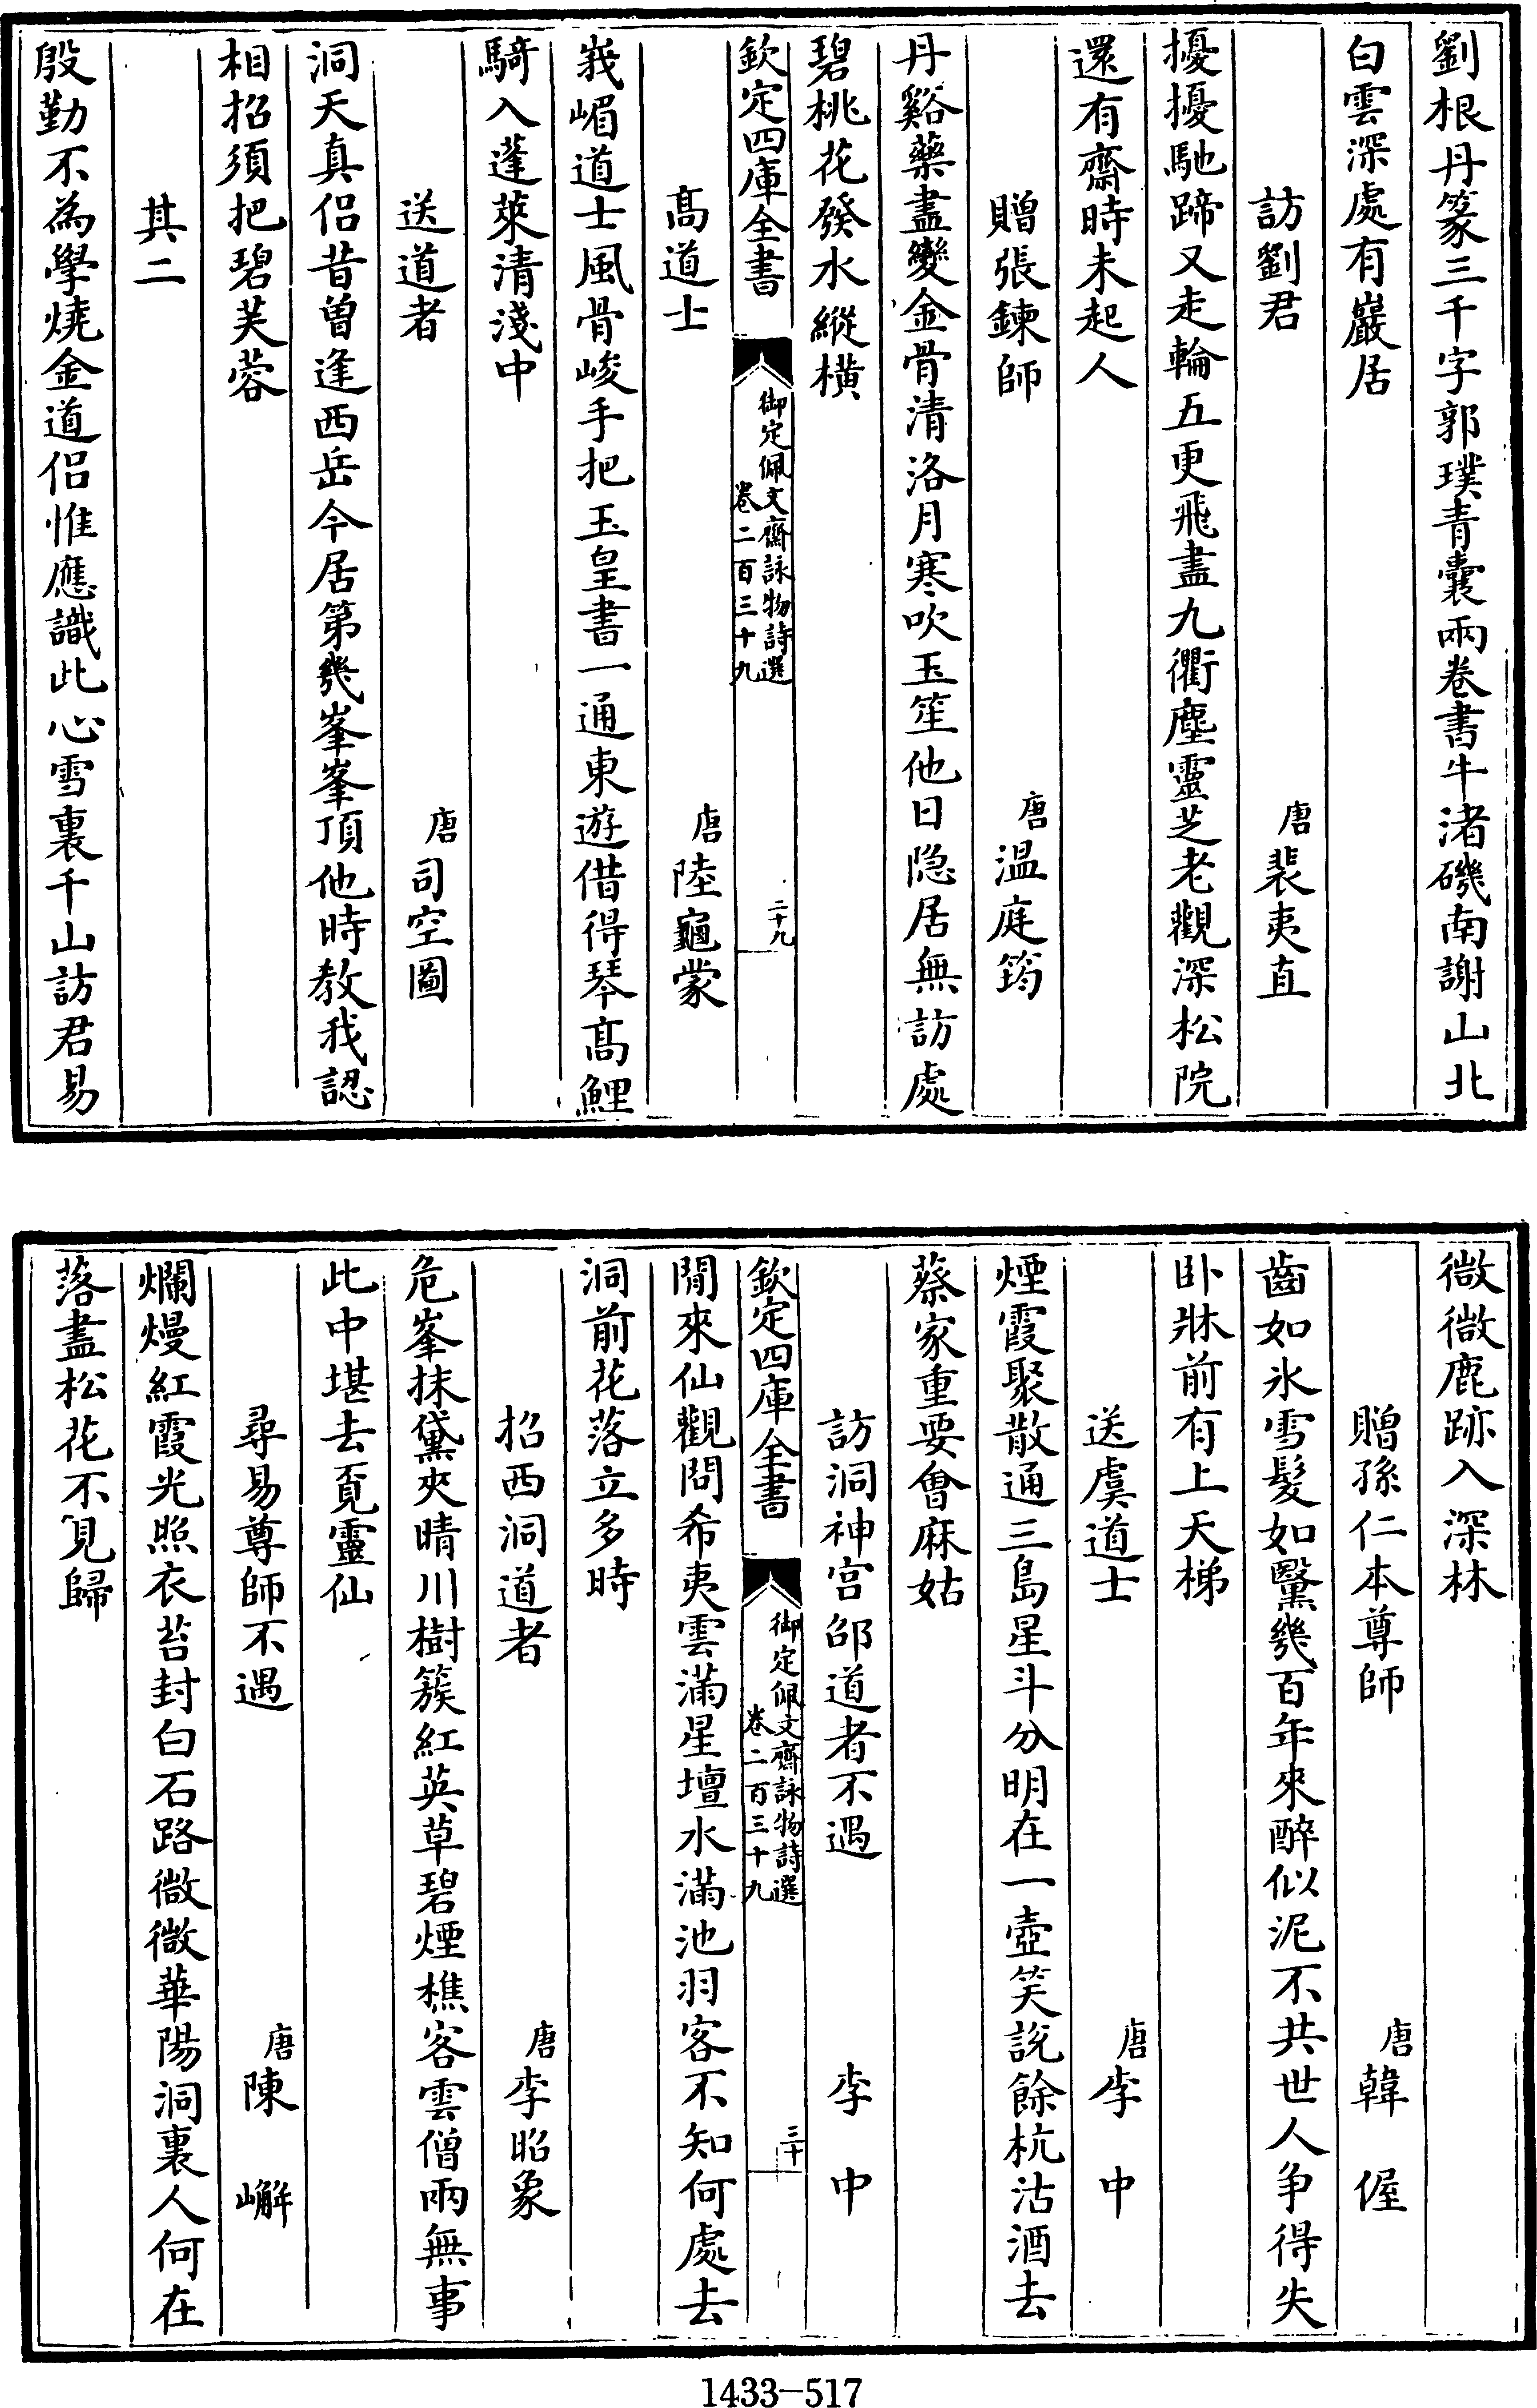 劉根丹篆三千字郭璞青囊兩卷書牛渚磯南謝山北
白雲深處有巖居
訪劉君 唐裴夷直
擾擾馳蹄又走輪五更飛盡九衢塵靈芝老觀深松院
還有齋時未起人
贈張鍊師 唐温庭筠
丹谿藥盡變金骨清洛月寒吹玉笙他日隐居無訪處
碧桃花發水縱橫
欽定四庫全書 御定佩文齋詠物詩選 卷二百三十九 二十九
高道士 唐陸龜蒙
峩嵋道士風骨峻手把玉皇書一通東遊借得琴高鯉
騎入蓬萊清淺中
送道者 唐司空圖
洞天真侣昔曾逢西岳今居第幾峯峯頂他時教我認
相招須把碧芙蓉
其二
殷勤不為學燒金道侣惟應識此心雪裏千山訪君易
微微鹿跡入深林
贈孫仁本尊師 唐韓偓
齒如氷雪髮如黳幾百年來醉似泥不共世人争得失
卧牀前有上天梯
送虞道士 唐李中
煙霞聚散通三島星斗分明在一壺笑說餘杭沽酒去
蔡家重要會麻姑
訪洞神宫邵道者不遇 李中
閒來仙觀問希夷雲滿星壇水滿池羽客不知何處去
洞前花落立多時
欽定四庫全書 御定佩文齋詠物詩選 卷二百三十九 三十
招西洞道者 唐李昭象
危峯抹黛夾晴川樹簇紅英草碧煙樵客雲僧兩無事
此中堪去覔靈仙
尋易尊師不遇 唐陳嶰
爛熳紅霞光照衣苔封白石路微微華陽洞裏人何在
落盡松花不見歸
1433-517